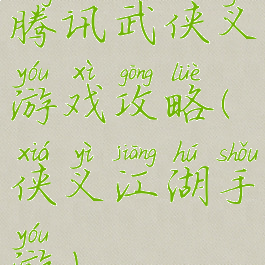 腾讯武侠义
yóu xì gōng lüè
游戏攻略(
xiá yì jiāng hú shǒu
侠义江湖手
yóu
游)